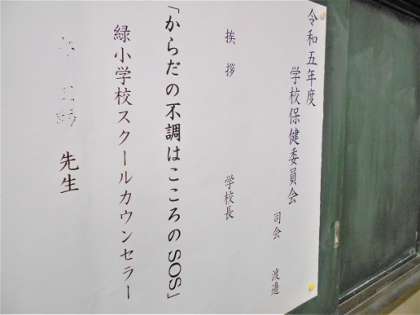 令和五年度
学校保健委員会
司会 渡邉
挨拶 学校長
「からだの不調はこころのSOS」
緑小学校スクールカウンセラー
先生